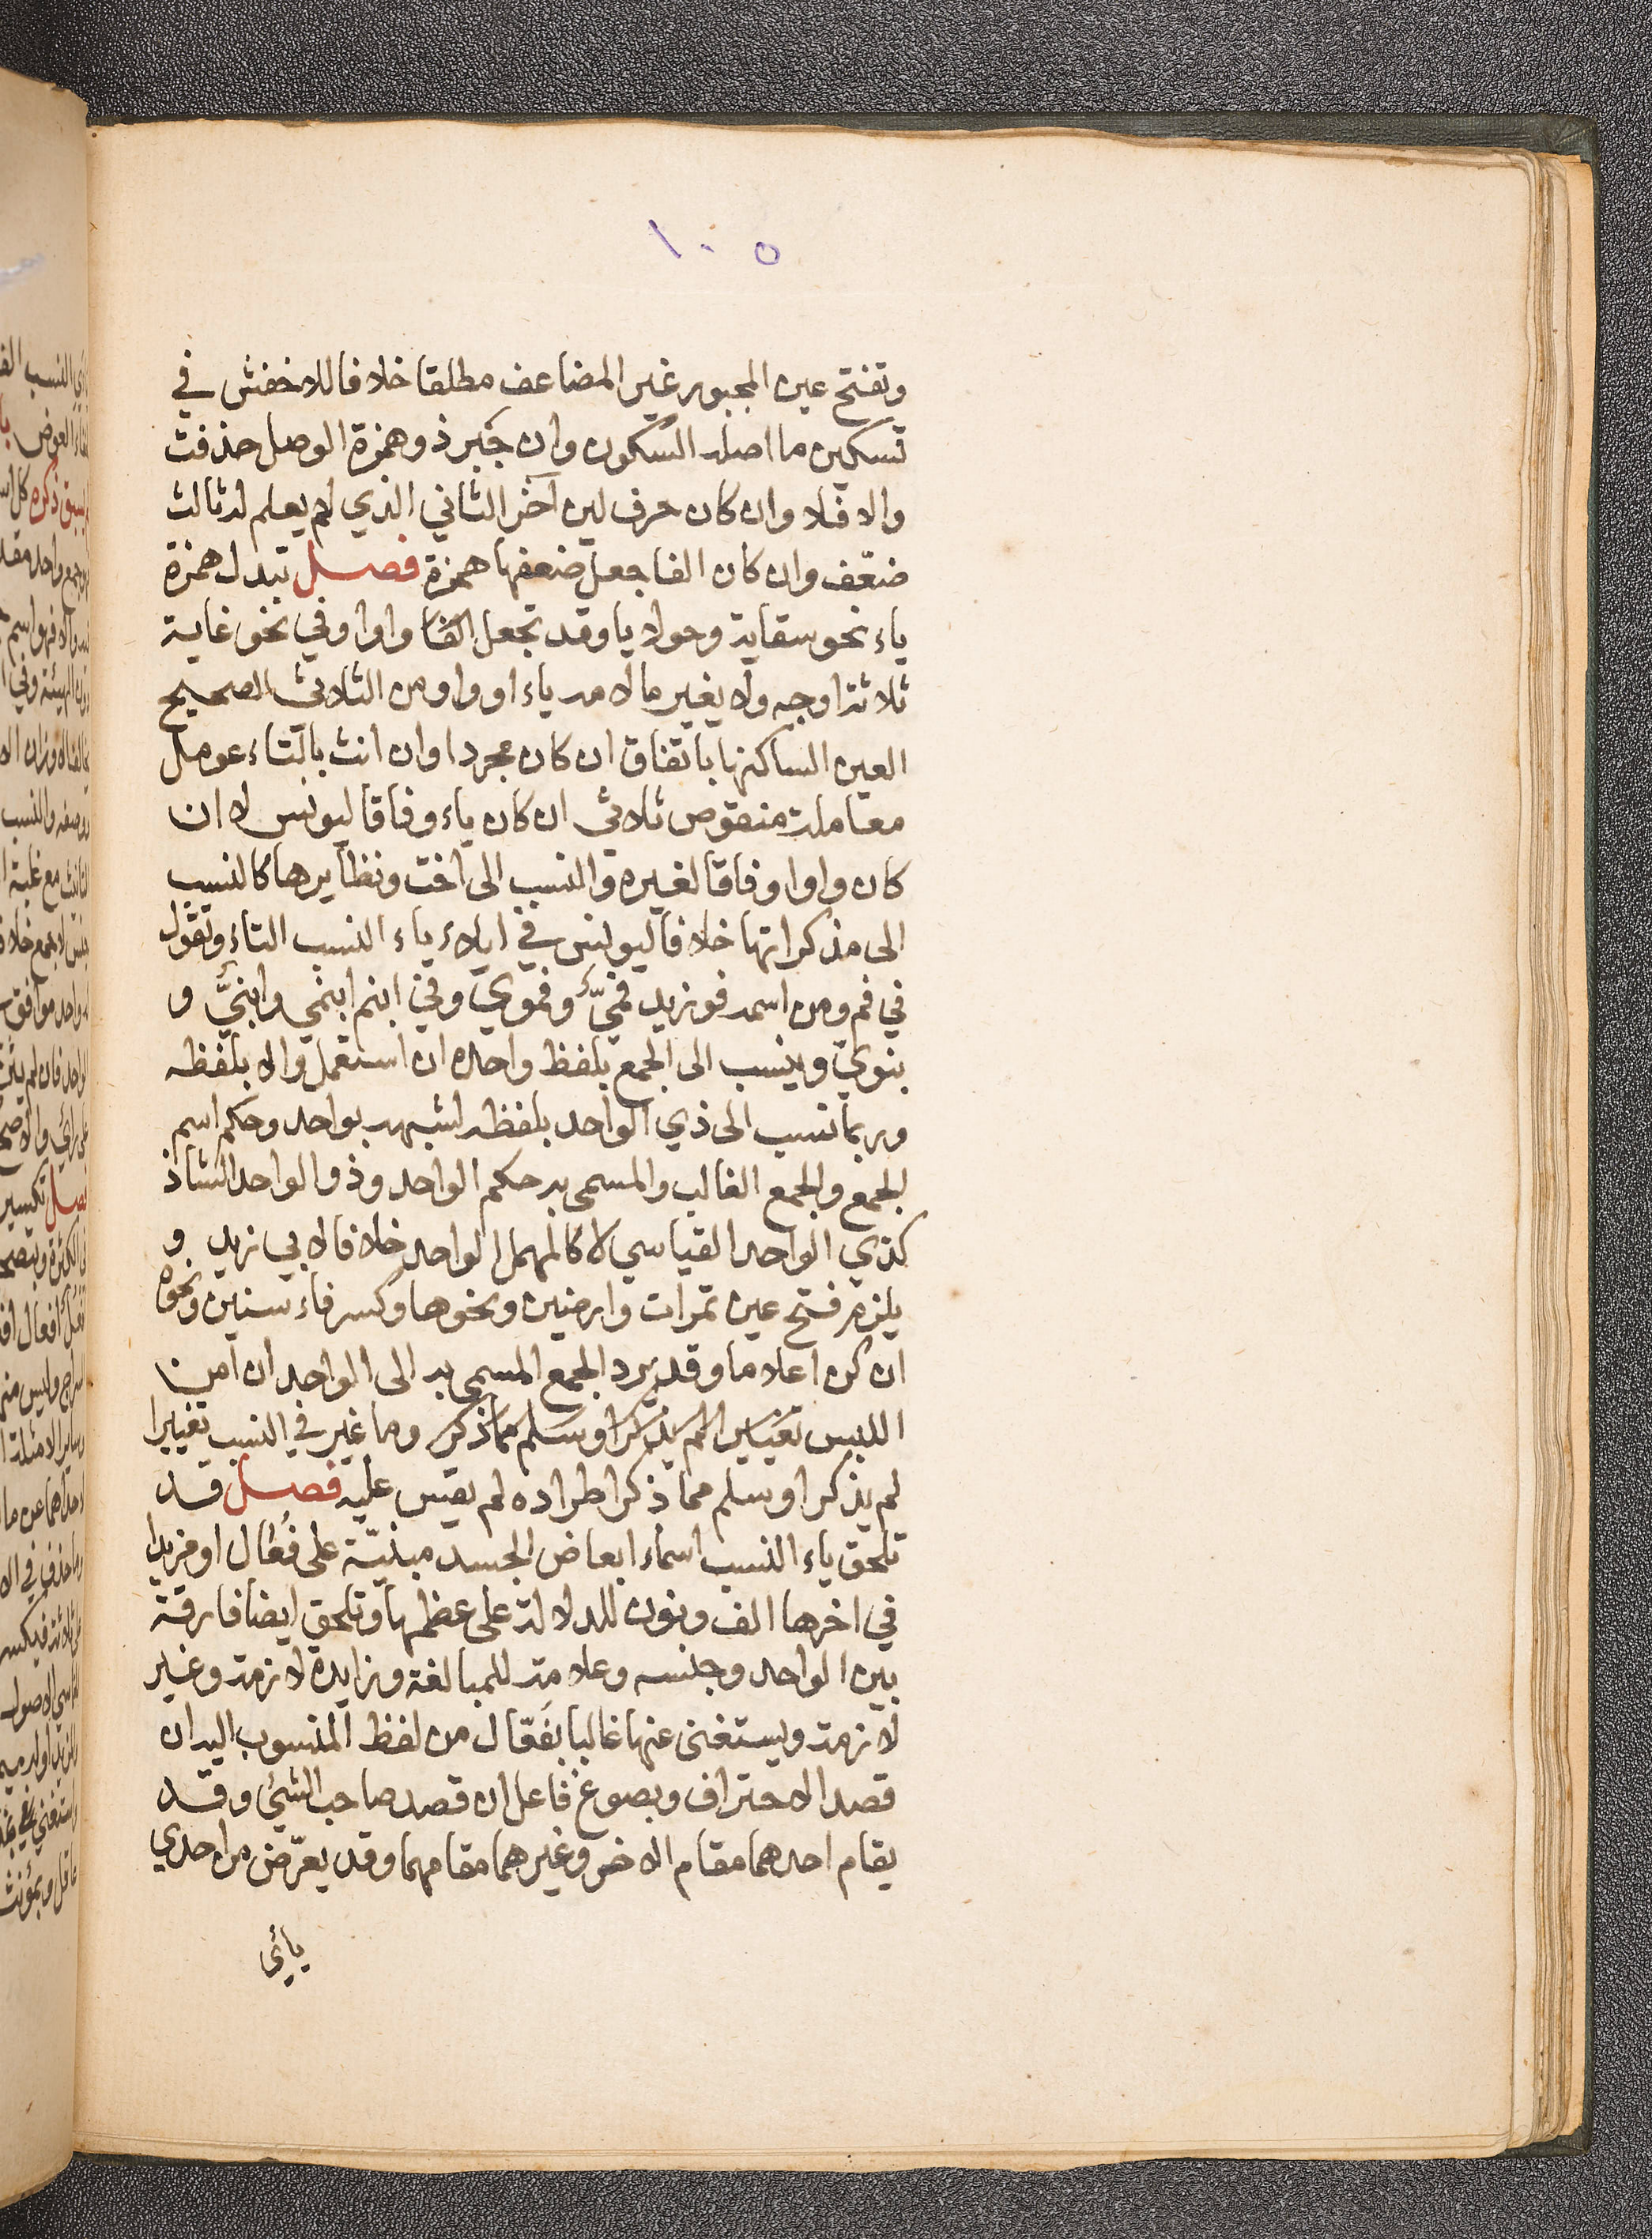 ١٠٥
وتفتح عين المجبور غير المضاعف مطلقا خلافا للاخفش في
تسكين ما اصله السكون وان جبر ذو همزة الوصل حذفت
والا فلا وان كان حرف لين آخر الثاني الذي لم يعلم له ثالث
ضعّف وان كان الفا جعل ضعفها همزة فصل تبدل همزة
ياء نحو سقاية وحولايا وقد تجعل الفا واوا وفي نحو غاية
ثلاثة اوجه ولا يغير ما لامه ياء او واو من الثلاثى الصحيح
العين الساكنها باتفاق ان كان مجردا وان انث بالتاء عومل
معاملة منقوص ثلاثي ان كان ياء وفاقا ليونس لا ان
كان واوا وفاقا لغيره والنسب الى اخت ونظايرها كالنسب
الى مذكراتها خلافا ليونس في ايلاء ياء النسب التاء وتقول
في فم ومن اسمه فو زيد فميّ وفموي وفي ابنم ابنمي وابنيّ و
بنويّ وينسب الى الجمع بلفظ واحده ان استعمل والا بلفظه
وربما نسب الى ذي الواحد بلفظه لشبهه بواحد وحكم اسم
الجمع والجمع الغالب والمسمى به حكم الواحد وذو الواحد الشاذ
كذي الواحد القياسي لا كالمهمل الواحد خلافا لابي زيد و
يلزم فتح عين تمرات وارضين ونحوها وكسر فاء سنين ونحوه
ان كن اعلاما وقد يرد الجمع المسمى به الى الواحد ان امن
اللبس تغييرا لم يذكر او سلم مما ذكر وما غير في النسب تغييرا
لم يذكر او سلم مما ذكر اطراده لم يقس عليه فصل قد
تلحق ياء النسب اسماء ابعاض الجسد مبنيّة على فُعَال او مزيدا
في اخرها الف ونون للدلالة على عظمها وتلحق ايضا فارقة
بين الواحد وجنسه وعلامة للمبالغة وزايدة لازمة وغير
لازمة ويستغنى عنها غالبا بفَعّال من لفظ المنسوب اليه ان
قصد الاحتراف وبصوغ فاعل ان قصد صاحب الشئ وقد
يقام احدهما مقام الاخر وغيرهما مقامهما وقد يعوّض من احدي
يائي